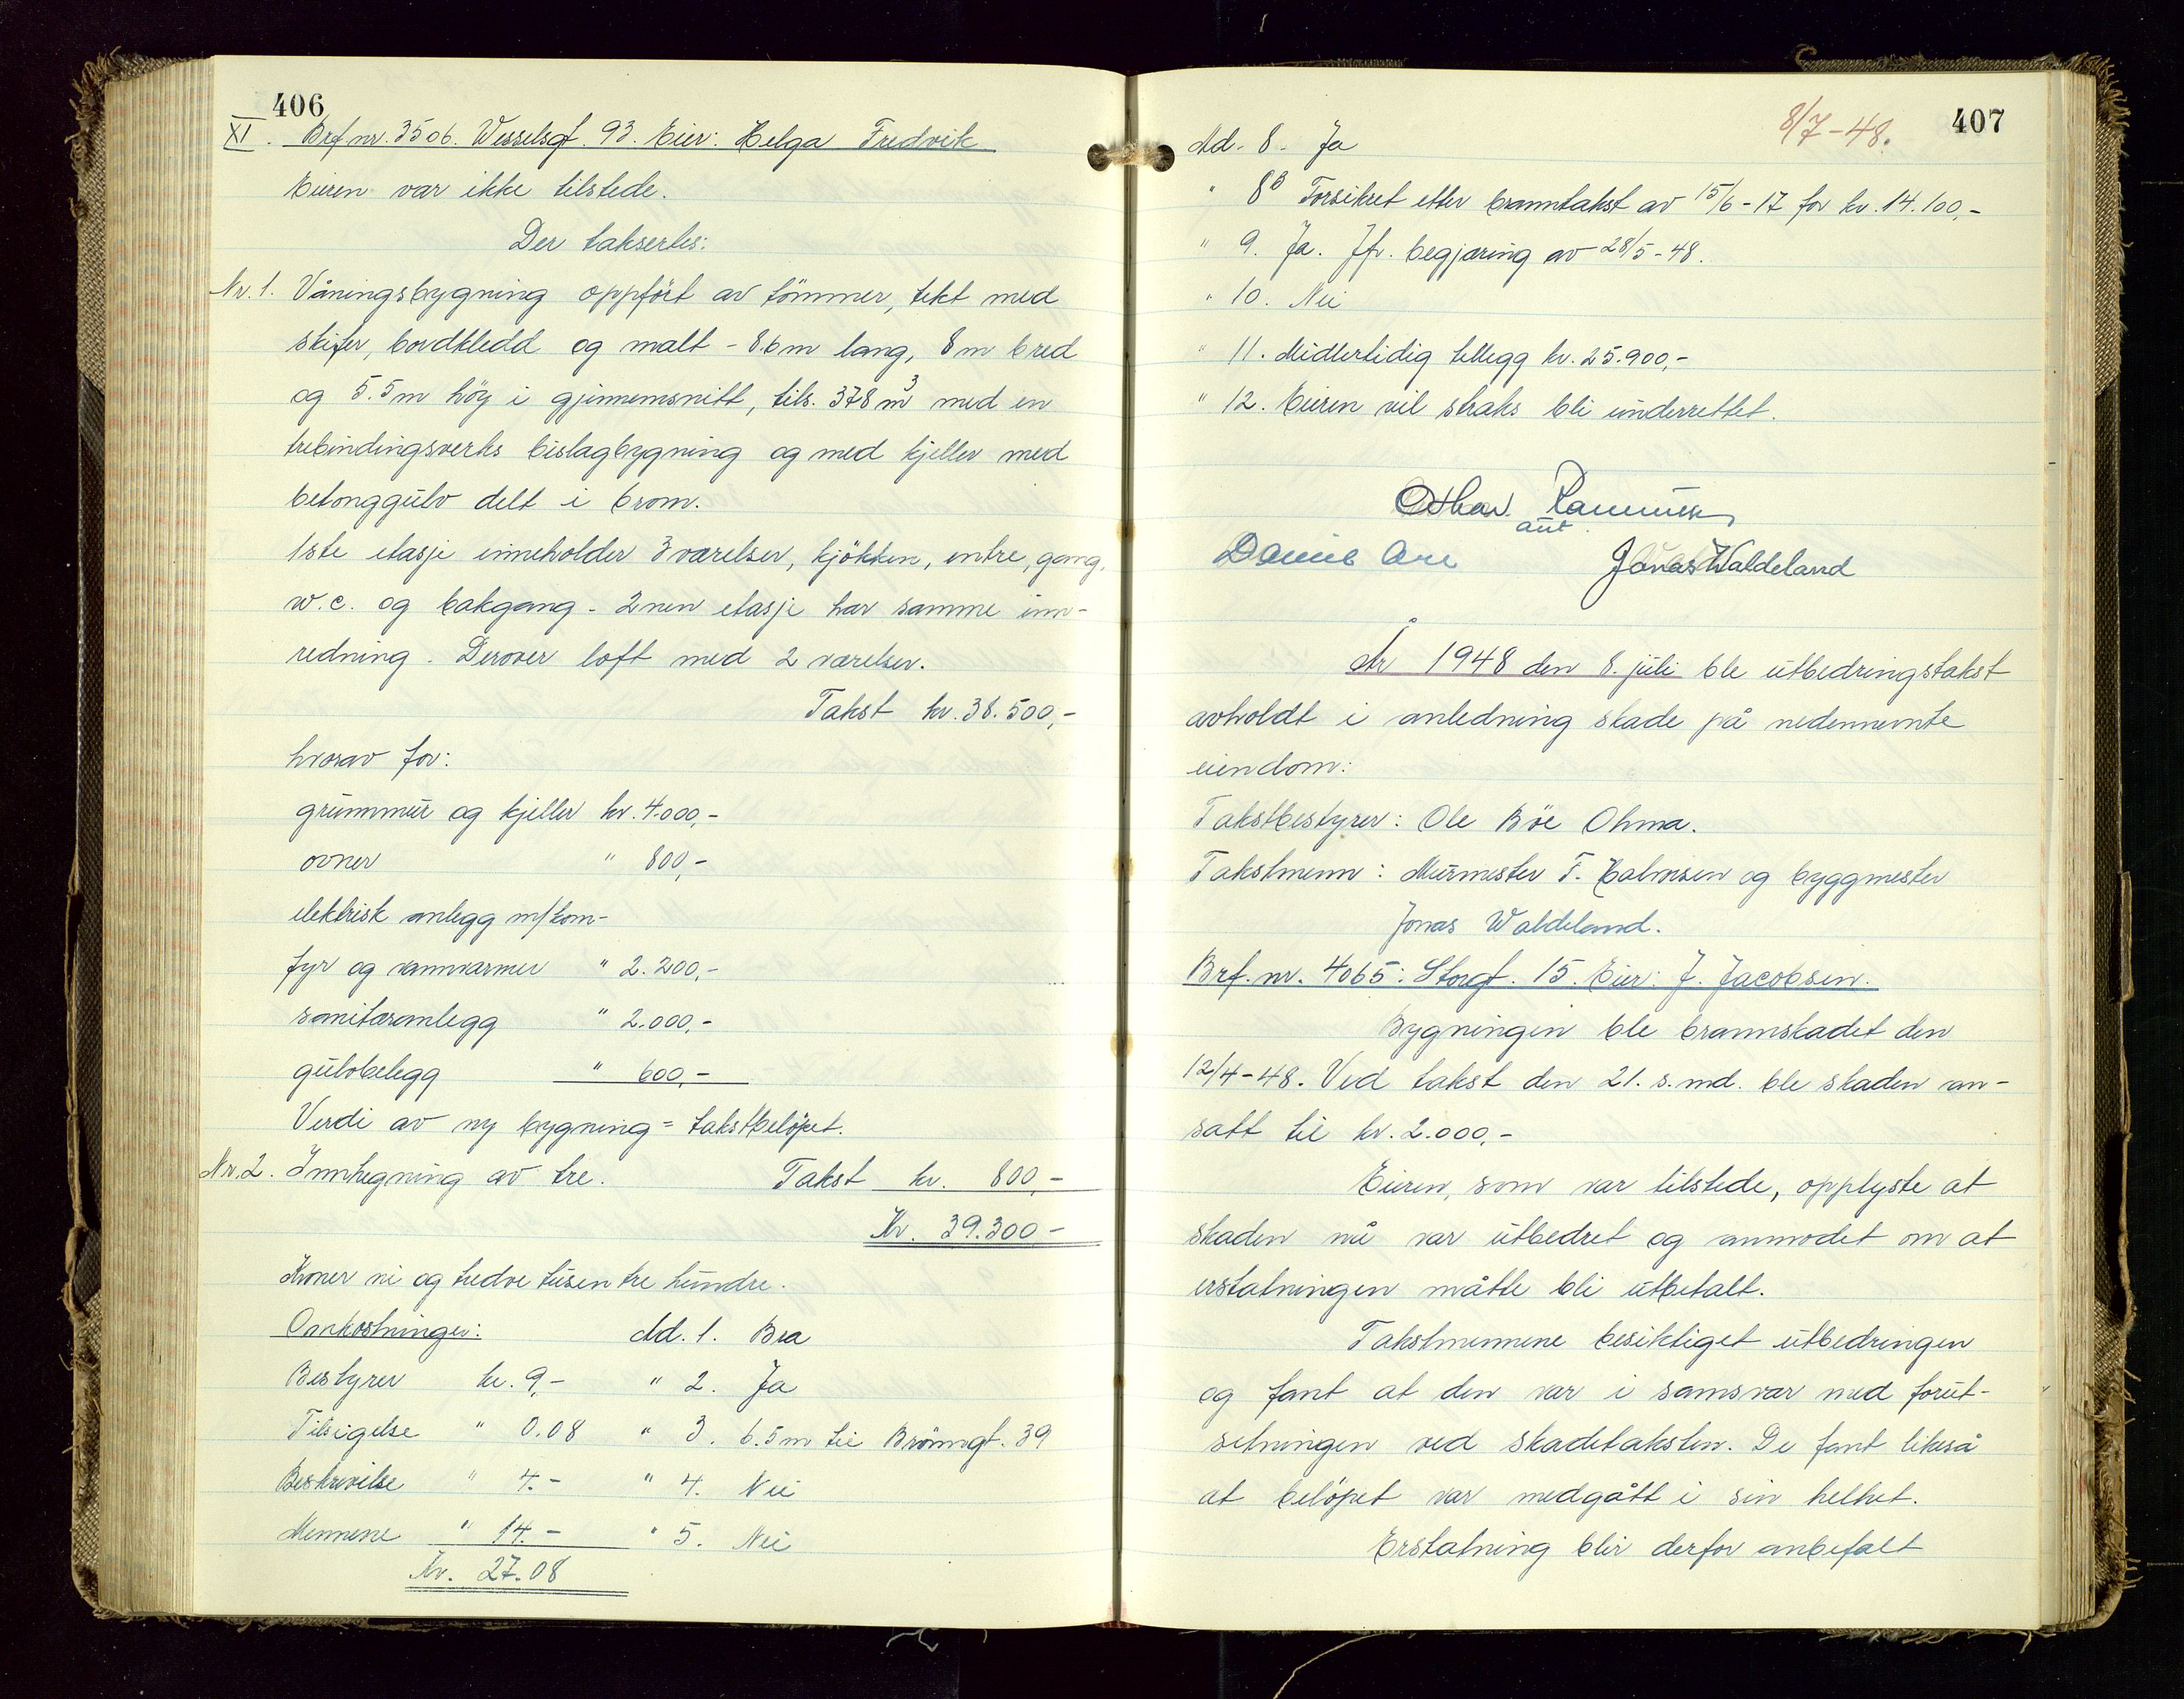 406
XI. Brf nr. 3506. Wesselsgt. 93. Eier: Helga Fredvik
Eieren var ikke tilstede.
Der takseres:
Nr. 1. Våningsbygning oppført av tömmer, tekt med
skifer, bordkledd og malt - 8.6m lang, 8m bred
og 5.5m höy i gjennemsnitt, tils. 378 m³ med en
trebindingsverks bislagbygning og med kjeller med
betonggulv delt i 6 rom.
1ste etasje inneholder 3 værelser, kjökken, entre, gang,
w.c. og bakgang - 2nen etasje har samme inn-
redning. Derover loft med 2 værelser.
Takst kr. 38.500,-
hvorav for:
grunnmur og kjeller kr. 4.000,-
ovner " 800,-
elektrisk anlegg m/kom-
fyr og vannvarmer " 2.200,-
sanitæranlegg " 2.000,-
gulvbelegg " 600,-
Verdi av ny bygning = takstbelöpet.
Nr. 2. Innhegning av tre. Takst kr. 800,-
Kr. 39.300-
Kroner ni og tredve tusen tre hundre.
Omkostninger: Ad. 1. Bra
Bestyrer kr. 9,- " 2. Ja
Tilsigelse " 0.08 " 3. 6.5m til Brönngt. 39
Beskrivelse " 4.- " 4. Nei
Mennene " 14.- " 5. Nei
Kr. 27.08
8/7-48. 407
Ad. 8. Ja
" 8B Forsikret etter branntakst av 15/6-17 for kr. 14.100,-
" 9. Ja. Jfr. begjæring av 28/5-48.
" 10. Nei
" 11. Midlertidig tillegg kr. 25.900,-
" 12. Eieren vil straks bli underrettet.
aut.
Jonas Waldeland
År 1948 den 8. juli ble utbedringstakst
avholdt i anledning skade på nedennevnte
eiendom:
Takstbestyrer: Ole Böe Ohma.
Takstmenn: Murmester F. Halvorsen og byggmester
Jonas Waldeland.
Brf. nr. 4065: Storgt. 15. Eier: J. Jacobsen.
Bygningen ble brannskadet den
12/4-48. Ved takst den 21. s. md. ble skaden an-
satt til kr. 2.000,-
Eieren, som var tilstede, opplyste at
skaden nå var utbedret og anmodet om at
erstatningen måtte bli utbetalt.
Takstmennene besiktiget utbedringen
og fant at den var i samsvar med forut-
setningen ved skadetaksten. De fant likeså
at belöpet var medgått i sin helhet.
Erstatning blir derfor anbefalt